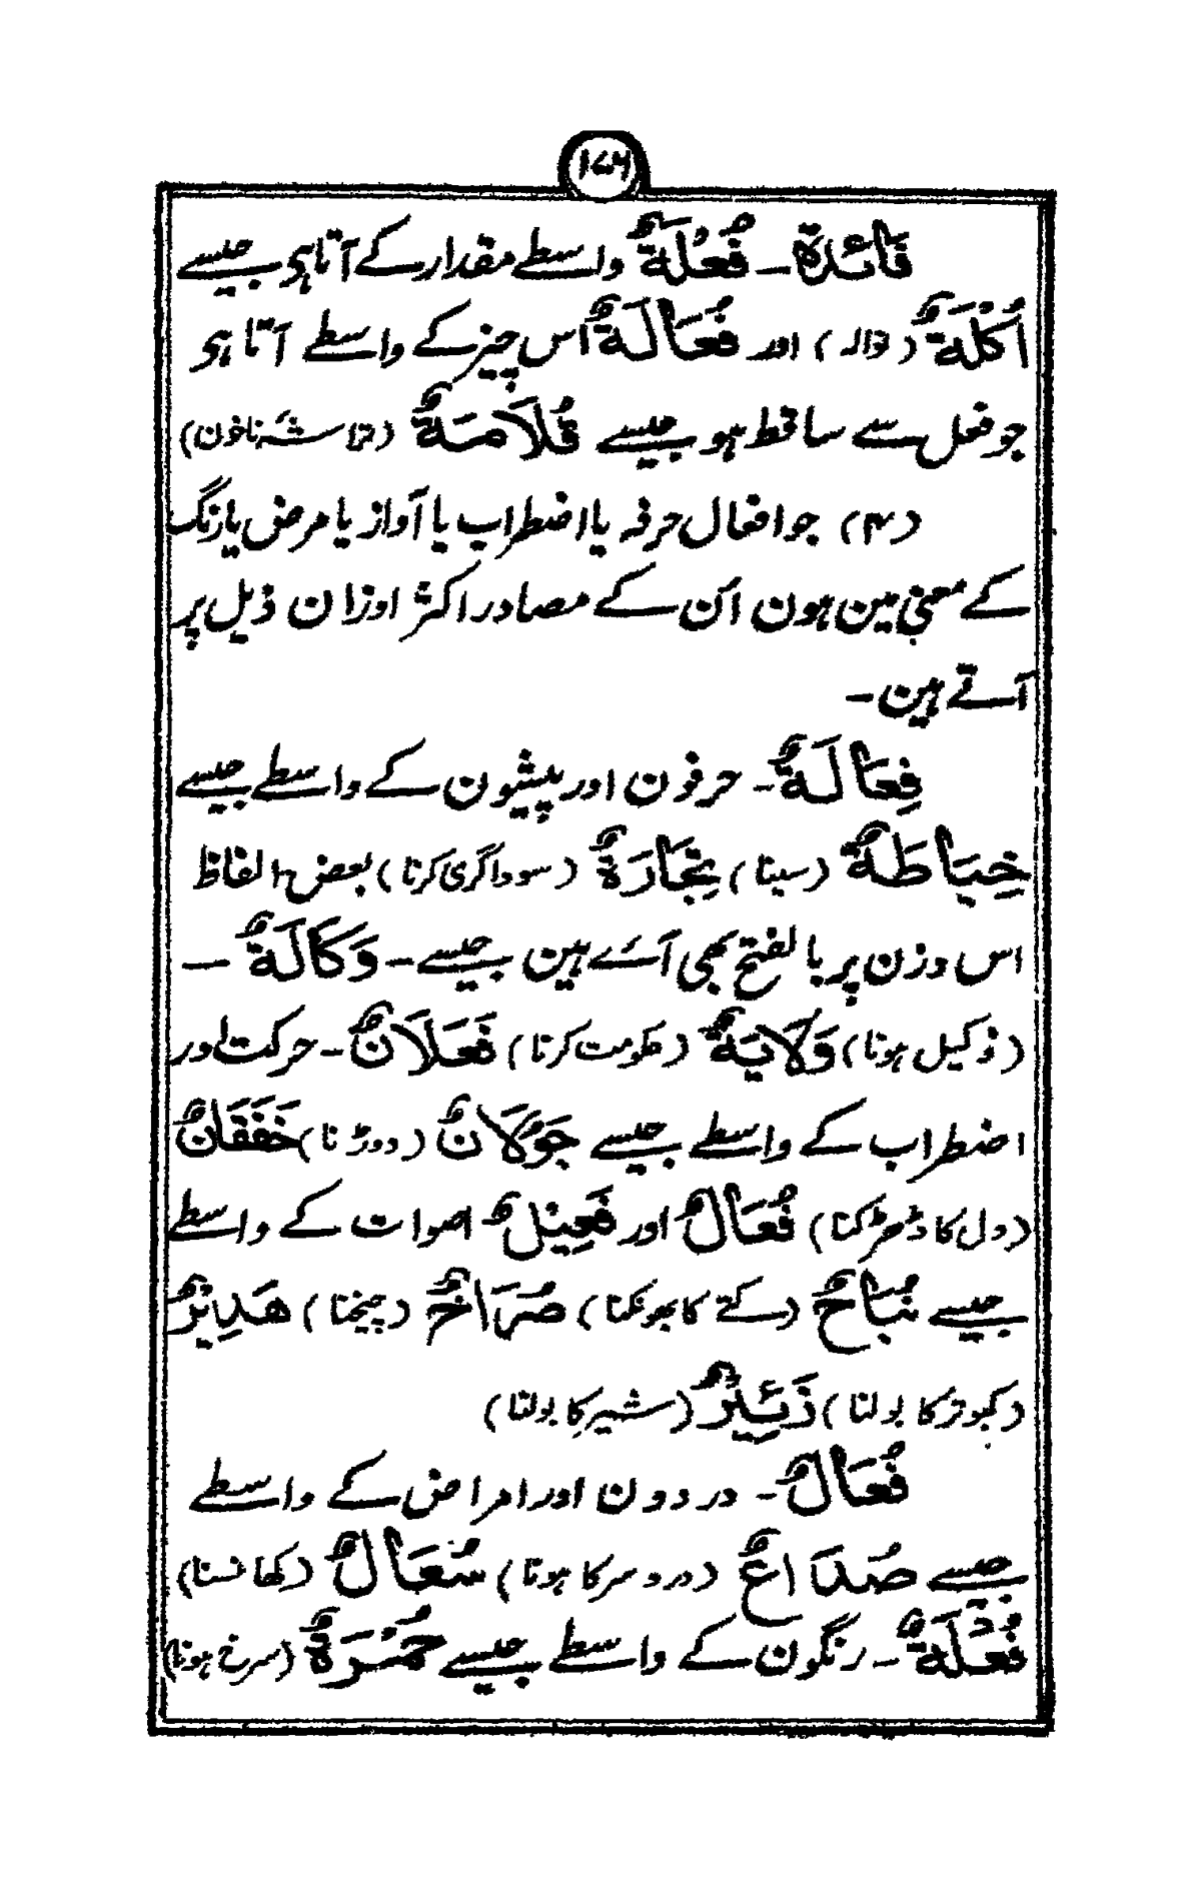 ۱۷۶
فَائدۃ۔ فُعْلَةٌ واسطے مقدار کے آتا ہی جیسے
اُكْلَةٌ (نوالہ) اور فُعَالَةٌ اس چیز کے واسطے آتا ہی
جو فعل سے ساقط ہو جیسے قُلَامَةٌ (تراشۂ ناخون)
(۴) جو افعال حرفہ یا اضطراب یا آواز یا مرض یا رنگ
کے معنی مین ہون اُن کے مصادر اکثر اوزان ذیل پر
آتے ہین۔
فِعَالَةٌ۔ حرفون اور پیشیون کے واسطے جیسے
خِيَاطَةٌ (سینا) تِجَارَةٌ (سوداگری کرنا) بعض الفاظ
اس وزن پر بالفتح بھی آئے ہین جیسے۔ وَكَالَةٌ۔
(وکیل ہونا) وَلَايَةٌ (حکومت کرنا) فَعَلَانٌ۔ حرکت اور
اضطراب کے واسطے جیسے جَوَلَانٌ (دوڑنا) خَفَقَانٌ
(دل کا دھڑکنا) فُعَالٌ اور فَعِيْلٌ اصوات کے واسطے
جیسے نُبَاحٌ (کتے کا بھونکنا) صُرَاخٌ (چیخنا) هَدِيْرٌ
(کبوتر کا بولنا) زَئِيْرٌ (شیر کا بولنا)
فُعَالٌ۔ دردون اور امراض کے واسطے
جیسے صُدَاعٌ (درد سر کا ہونا) سُعَالٌ (کھانسنا)
فُعْلَةٌ۔ رنگون کے واسطے جیسے حُمْرَةٌ (سرخ ہونا)